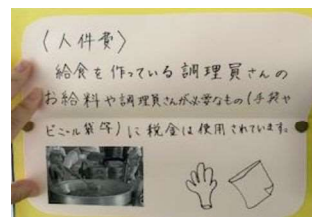 〈人件費〉
給食を作っている調理員さんの
お給料や調理員さんが必要なもの(手袋や
ビニール袋等)に税金は使用されています。